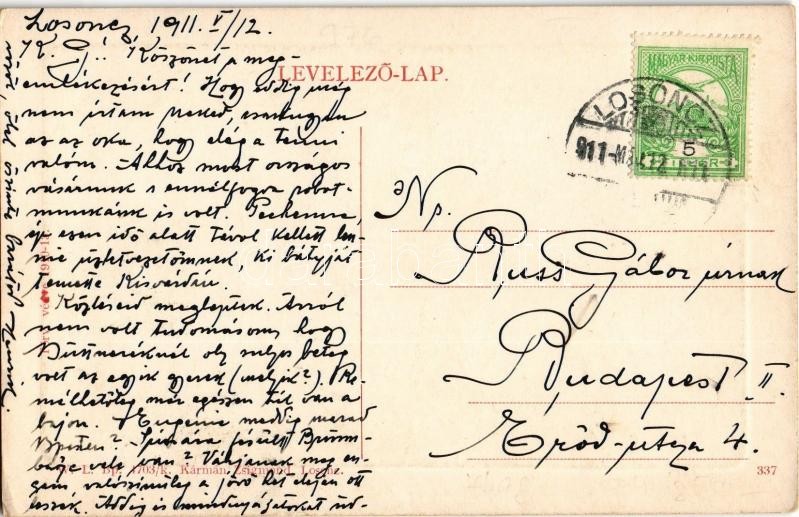 Losoncz, 1911. V/12.
K. G.! Köszönet a meg-
emlékezésért! Hogy eddig még
nem írtam neked, 
az az oka, hogy elég a tenni
valóm. Ahhoz most országos
vásárunk s ennélfogva robot-
munkánk is volt. Pechemre,
ép ezen idő alatt távol kellett len-
nie üzletvezetőmnek, ki bátyját
temette Kisvárdán.
Közléseid megleptek. Arról
nem volt tudomásom, hogy
oly súlyos beteg
volt az egyik gyerek (melyik?) Re-
mélhetőleg már egészen túl van a
bajon. Eugenie meddig marad
Bpesten? 
van? Várjanak meg en-
gem valószínűleg a jövő hét elején ott
leszek. Addig is mindnyájatokat üd-
LEVELEZŐ-LAP.
MAGYAR·KIR·POSTA
LOSONCZ
911-MÁJ.12
5
Ns.
Russ Gábor úrnak
Budapest II.
Erőd-utcza 4.
W. L. Bp. 1703/k. Kármán Zsigmond, Losonc.
337